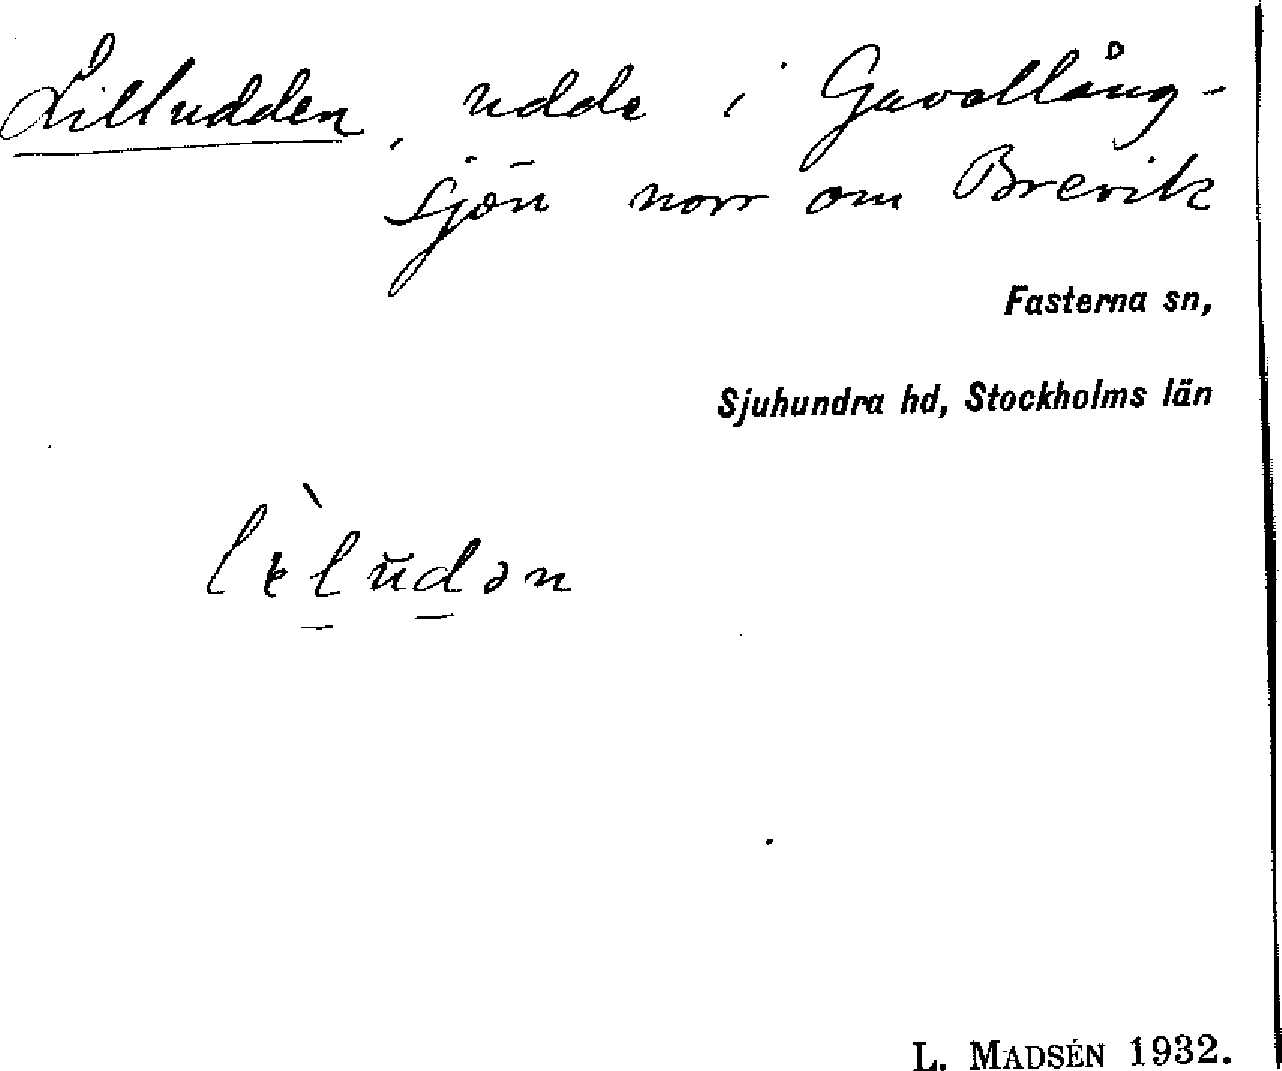 Lilludden, udde i Gavellång-
sjön norr om Brevik
Fasterna sn,
Sjuhundra hd, Stockholms län
L. MADSÉN 1932.